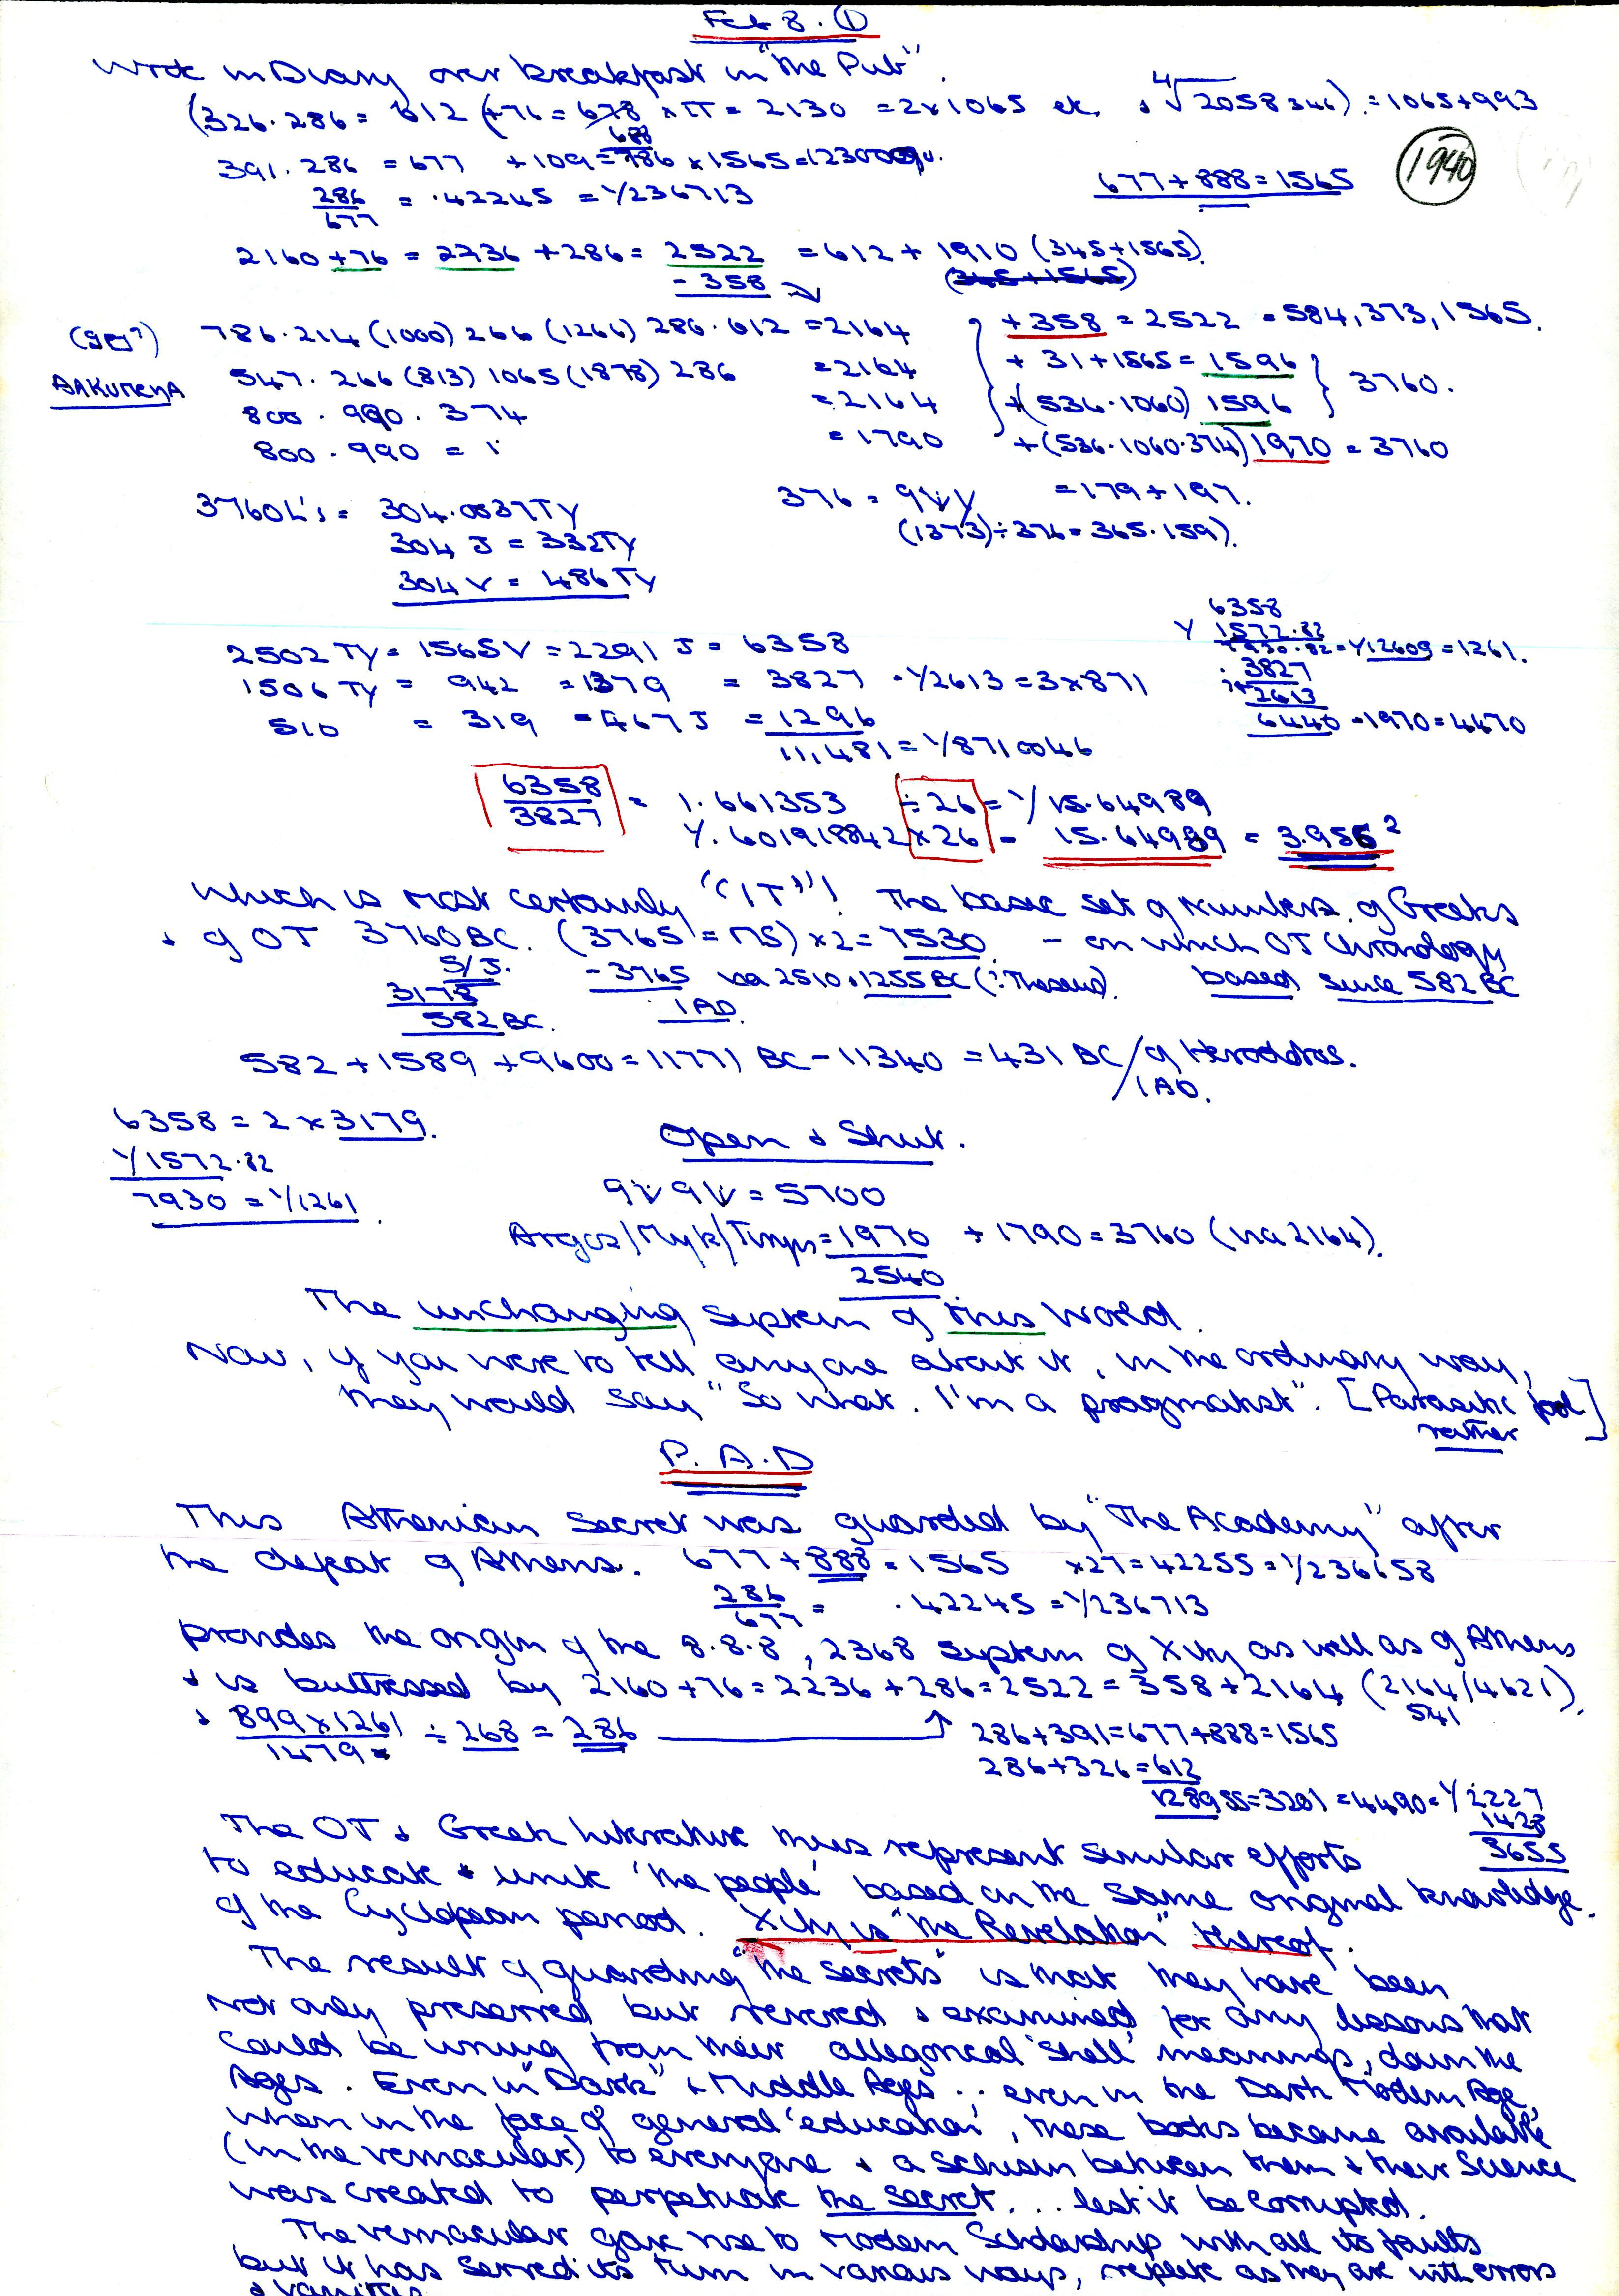 Feb 8. ①
Wrote in Diary over breakfast in "the Pub".
(326.286 = 612 (+76 = 678 × π = 2130 = 2×1065 etc. & ∜2058346) = 1065+993
688
391.286 = 677 +109 = 786 × 1565 = 12300
677+888=1565
1940
286/677 = .42245 = 1/236713
2160+76 = 2236 +286 = 2522 = 612 + 1910 (345+1565).
- 358
(345+1565)
786.214 (1000) 266 (1266) 286.612 = 2164
+358 = 2522 = 584, 373, 1565.
ALKUMENA
547.266 (813) 1065 (1878) 286 = 2164
+ 31+1565 = 1596
3760.
800.990.374 = 2164
+(536.1060) 1596
800.990 = 1 = 1790
+(536.1060.374) 1970 = 3760
3760L's = 304.0037TY
376 = 9ΨY = 179+197.
304 J = 332TY
(1373)÷376 = 365.159).
304 V = 486TY
6358
Y 1572.82
7930.82 = Y12609 = 1261.
2502 TY = 1565V = 2291 J = 6358
3827
1506 TY = 942 = 1379 = 3827 . Y2613 = 3×871
2613
510 = 319 = 467 J = 1296
6440 - 1970 = 4470
11,481 = Y8710046
6358/3827 = 1.661353 ÷26 = Y 15.64989
Y.601918842 ×26 = 15.64989 = 3.956²
Which is most certainly "(IT)"! The basic set of numbers of Greeks
& of OT 3760BC. (3765 = MS) ×2 = 7530 - on which OT Chronology
S/J. - 3765 via 2510 & 1255BC (: Theseus). based since 582BC
3178
1AD.
582BC.
582+1589+9600=11771 BC - 11340 = 431 BC / of Herodotos.
1AD.
6358 = 2×3179.
Open & Shut.
Y1572.82
7930 = Y1261
9Ψ 9Ψ = 5700
Argos/Myk/Tiryns = 1970 + 1790 = 3760 (via 2164).
2540
The unchanging system of this World.
Now, if you were to tell anyone about it, in the ordinary way,
they would say "So what. I'm a pragmatist". [Parasitic fool]
rather
P.A.D
This Athenian Secret was guarded by "The Academy" after
the defeat of Athens. 677+888=1565 ×27=42255=Y236658
286/677 = .42245 = Y236713
provides the origin of the 8.8.8, 2368 system of Xity as well as of Athens
& is buttressed by 2160+76=2236+286=2522=358+2164 (2164/4621).
541
& 899×1261/1479 ÷ 268 = 286
286+391=677+888=1565
286+326=612
1289 SS=3201=4490=Y2227
1428
3655
The OT & Greek literature thus represent similar efforts
to educate & unite 'the people' based on the same original knowledge
of the Cyclopean period. Xity is "the Revelation" thereof.
The result of guarding "the secrets" is that they have been
not only preserved but revered & examined for any lessons that
could be wrung from their allegorical 'shell' meanings, down the
Ages. Even in "Dark" & Middle Ages .. even in the Dark Modern Age,
when in the face of general 'education', these books became available
(in the vernacular) to everyone & a schism between them & their Science
was created to perpetuate the secret... lest it be corrupted.
The vernacular gave rise to Modern Scholarship with all its faults
but it has served its turn in various ways, replete as they are with errors
& vanities